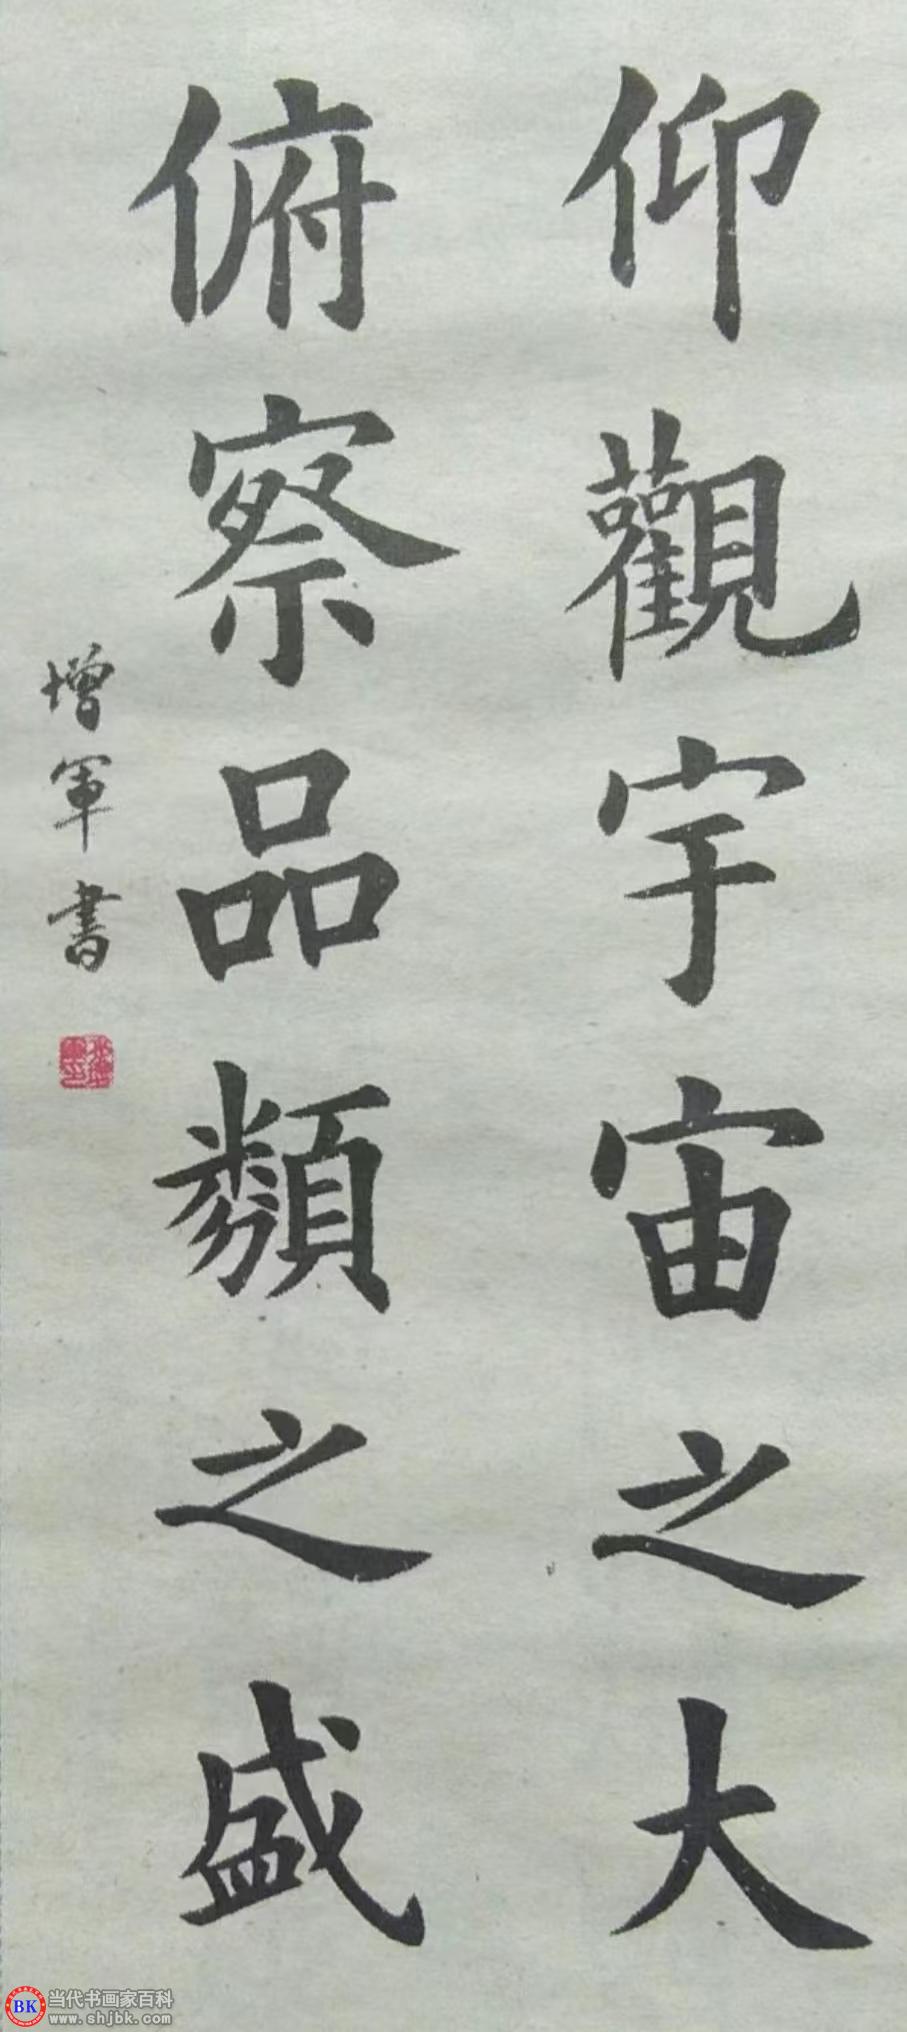 仰觀宇宙之大
俯察品類之盛
增軍書
BK 当代书画家百科
www.shjbk.com